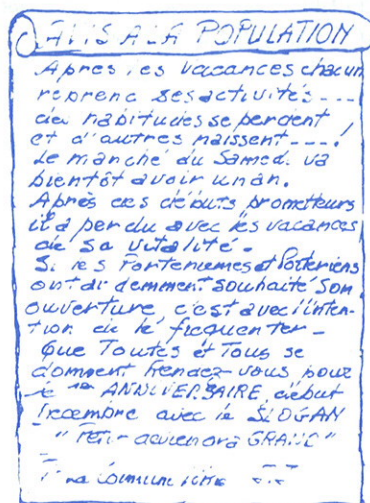 AVIS A LA POPULATION
Apres les vacances chacun
reprend ses activités ---
des habitudes se perdent
et d'autres naissent ---!
Le marché du Samedi va
bientôt avoir un an.
Après ces débuts prometteurs
il a perdu avec les vacances
de sa vitalité -
Si les et
ont ardemment souhaité son
ouverture, c'est avec l'inten-
tion de le frequenter -
Que Toutes et Tous se
donnent Rendez vous pour
le 1er ANNIVERSAIRE, début
Decembre avec le SLOGAN
"PETIT deviendra GRAND"